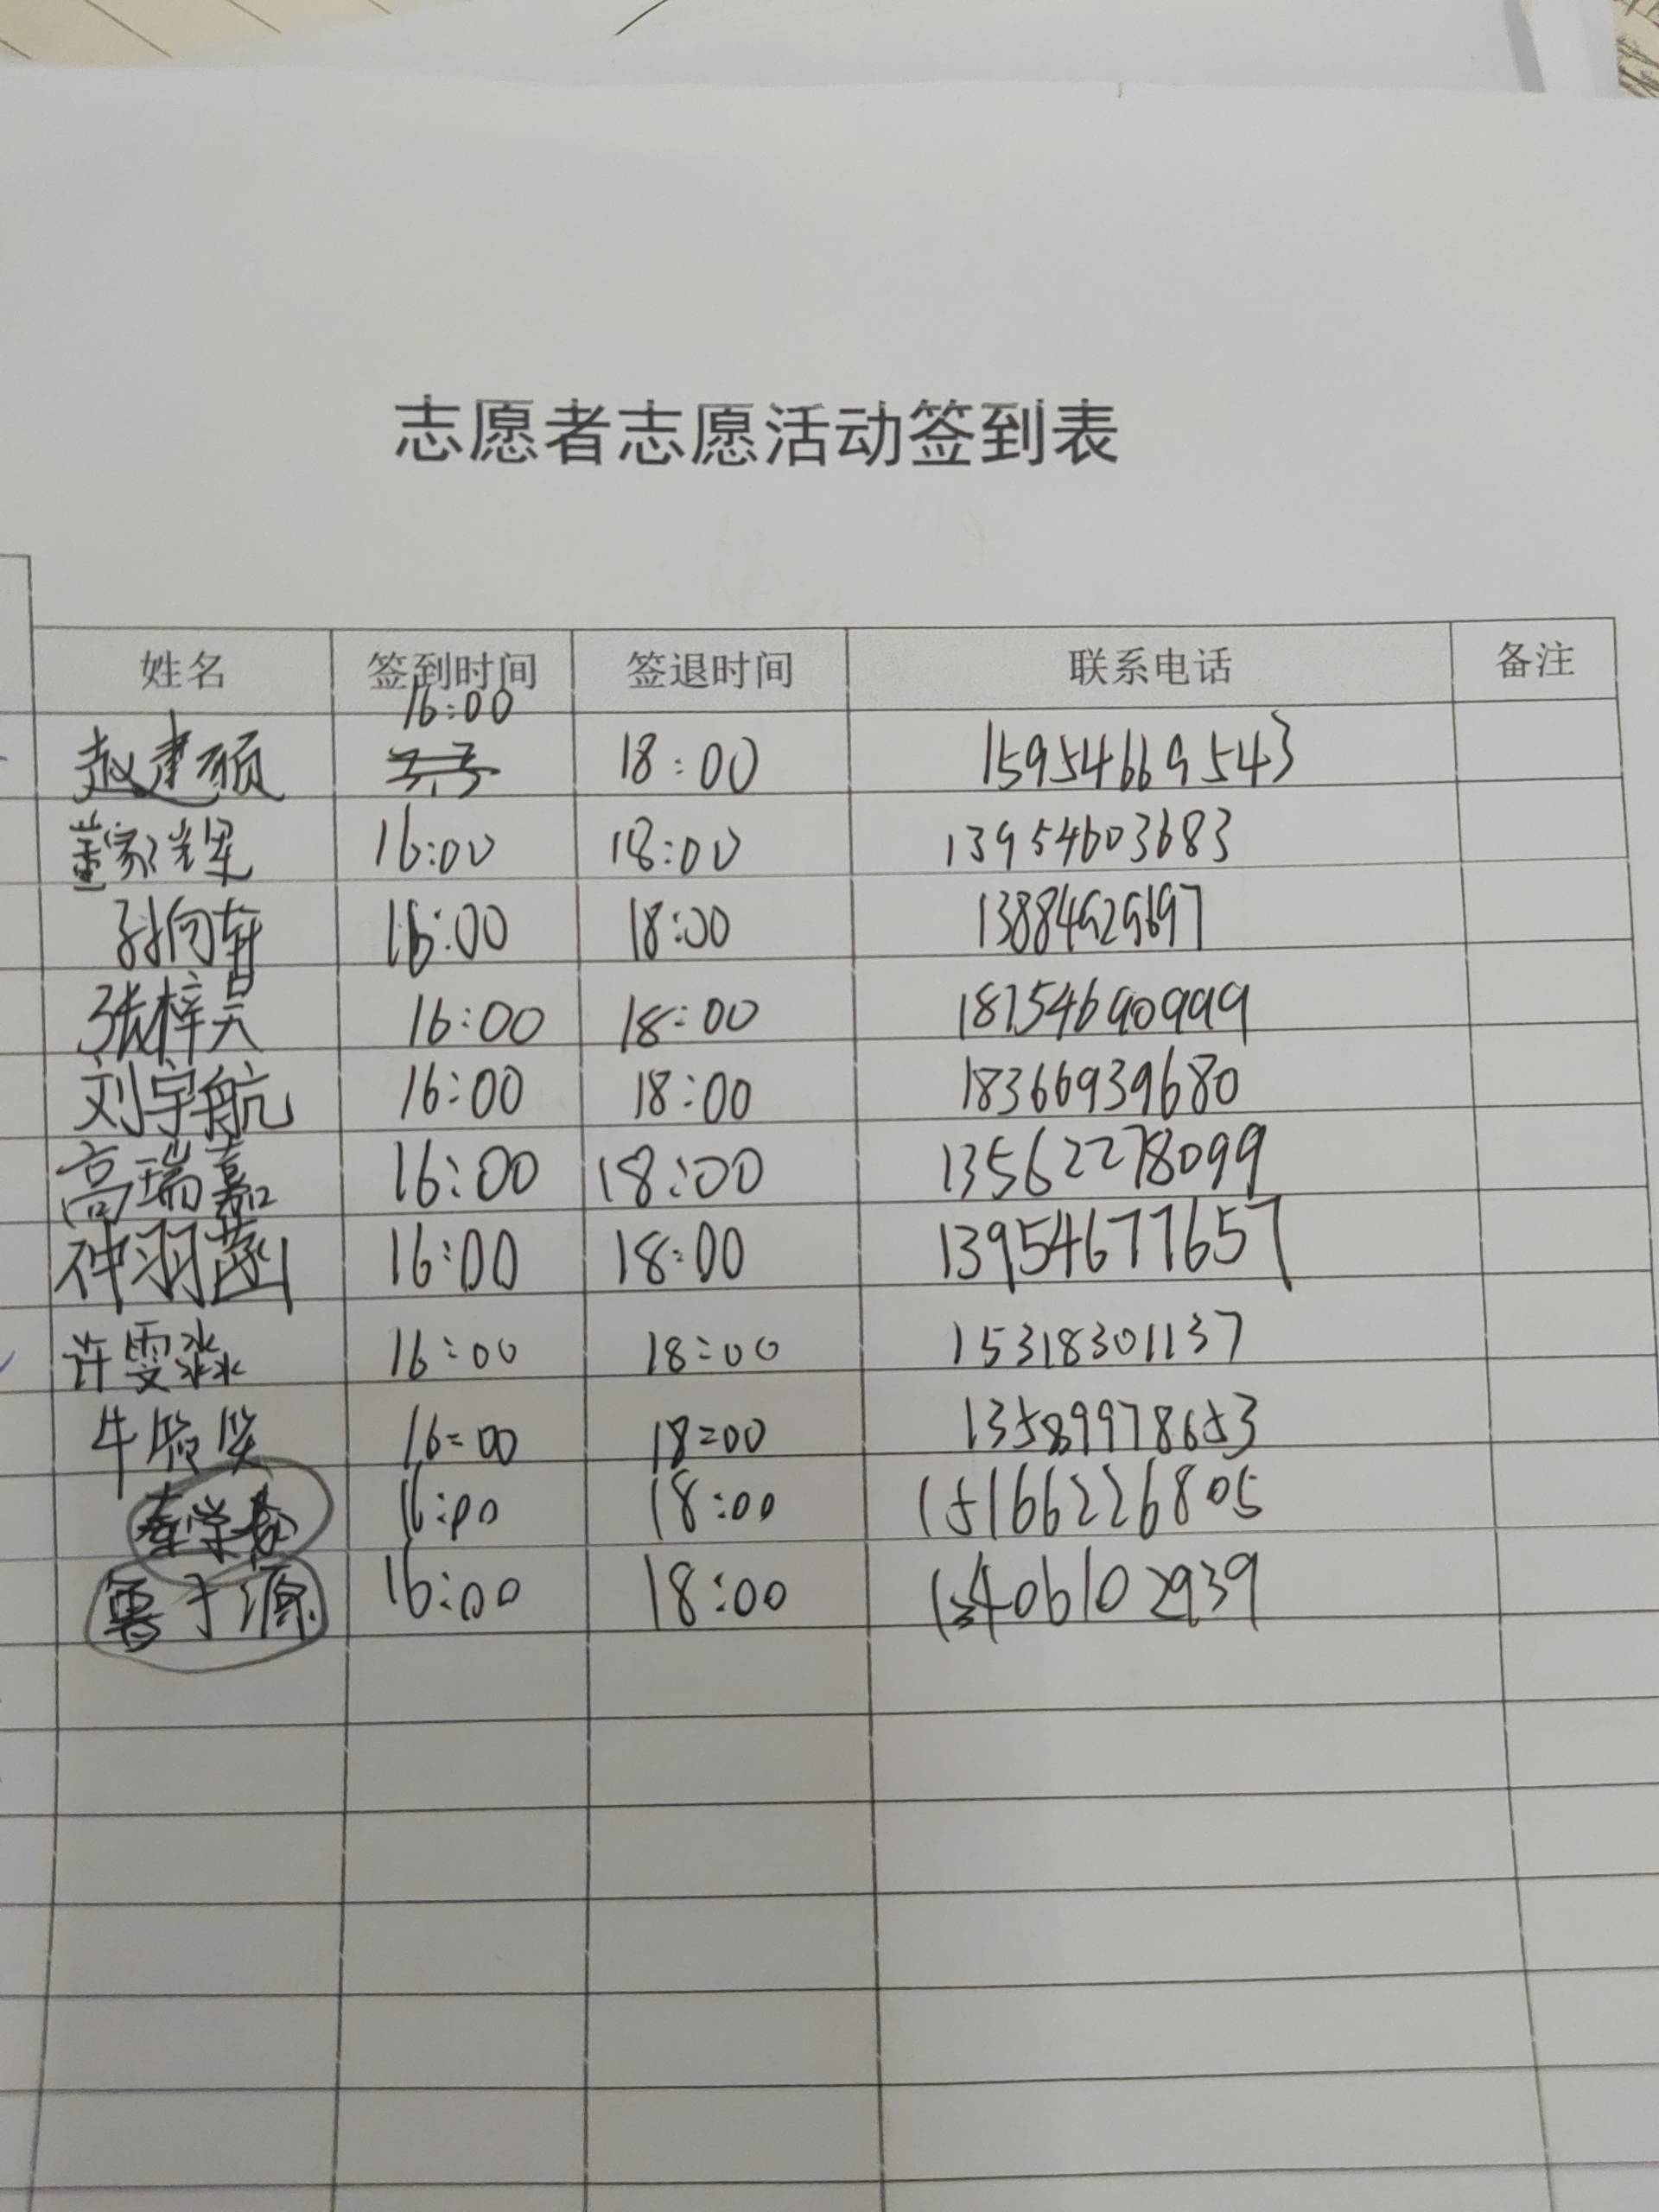 志愿者志愿活动签到表
姓名 签到时间 签退时间 联系电话 备注
16:00
赵建硕 18:00 15954669543
董家辉 16:00 18:00 13954603683
孙向轩 16:00 18:00 13884929697
张梓昊 16:00 18:00 18754690999
刘宇航 16:00 18:00 18366939680
高瑞嘉 16:00 18:00 13562278099
仲羽菡 16:00 18:00 13954677657
许雯淼 16:00 18:00 15318301137
牛 16:00 18:00 13589978653
秦学春 16:00 18:00 15166226805
鲁于源 16:00 18:00 13406102939